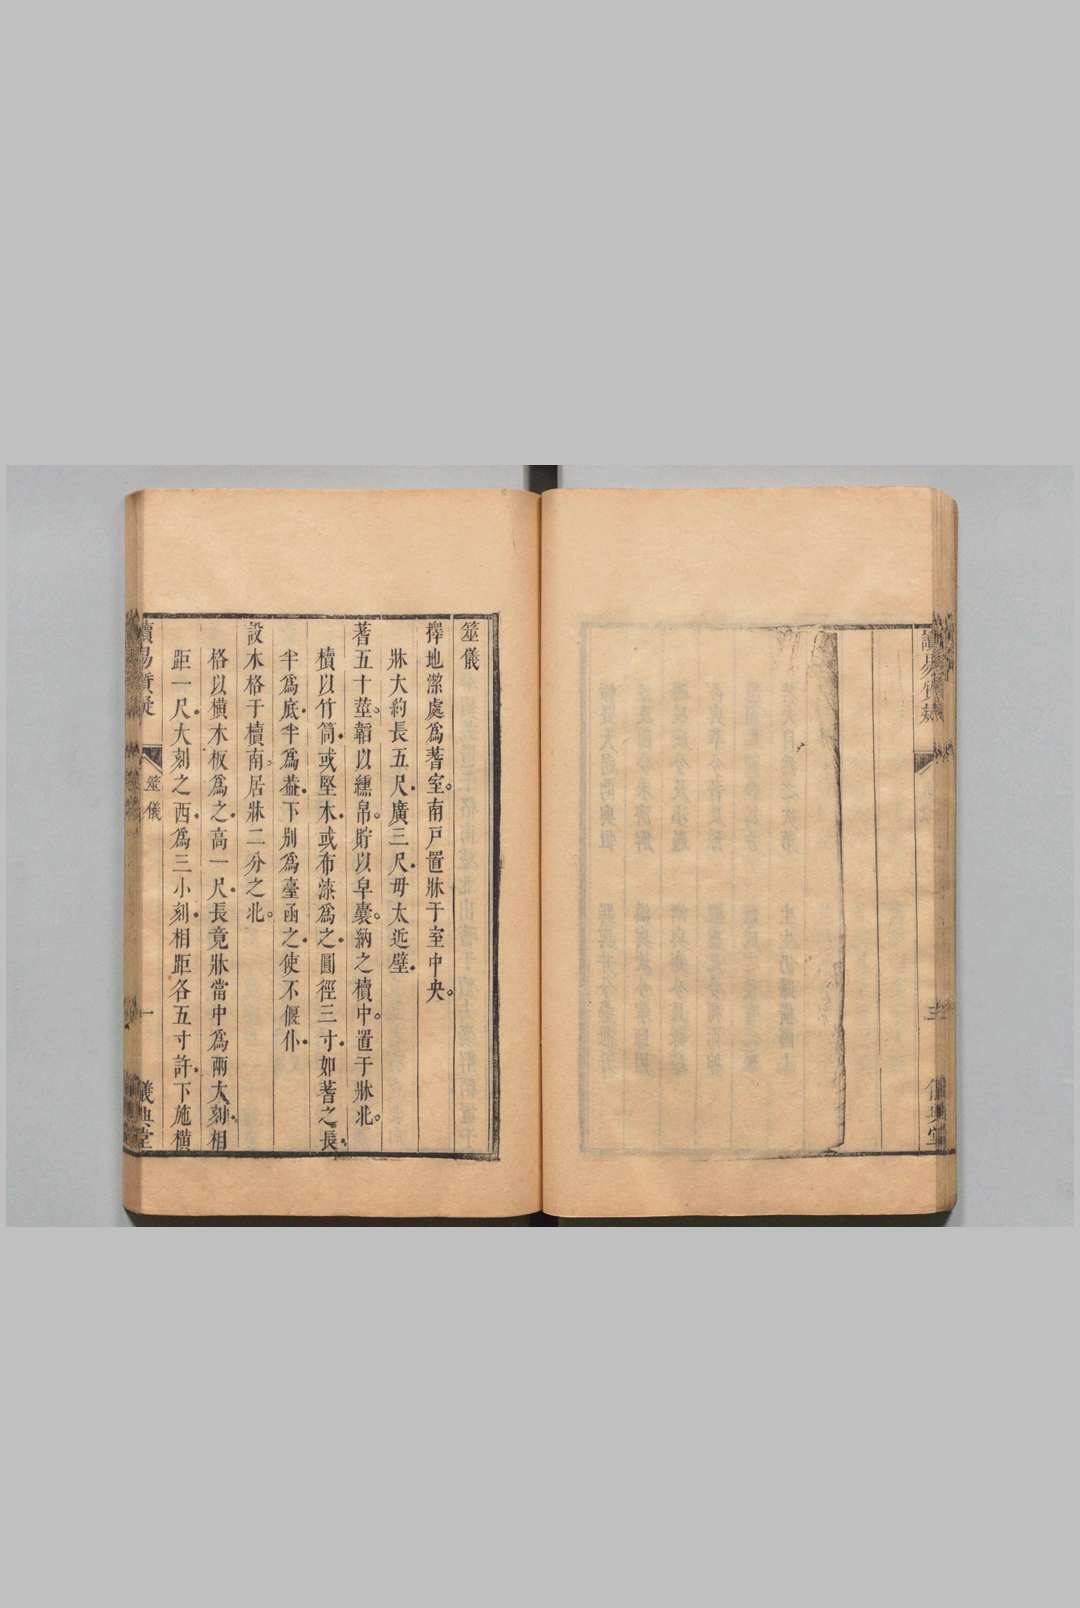 讀易質疑
儀典堂
筮儀
擇地潔處爲蓍室南戸置牀于室中央
牀大約長五尺廣三尺毋太近壁
蓍五十莖韜以纁帛貯以皁囊納之櫝中置于牀北
櫝以竹筒或堅木或布漆爲之圓徑三寸如蓍之長
半爲底半爲葢下别爲臺函之使不偃仆
設木格于櫝南居牀二分之北
格以横木板爲之高一尺長竟牀當中爲兩大刻相
距一尺大刻之西爲三小刻相距各五寸許下施橫
讀易質疑
筮儀
一
儀典堂